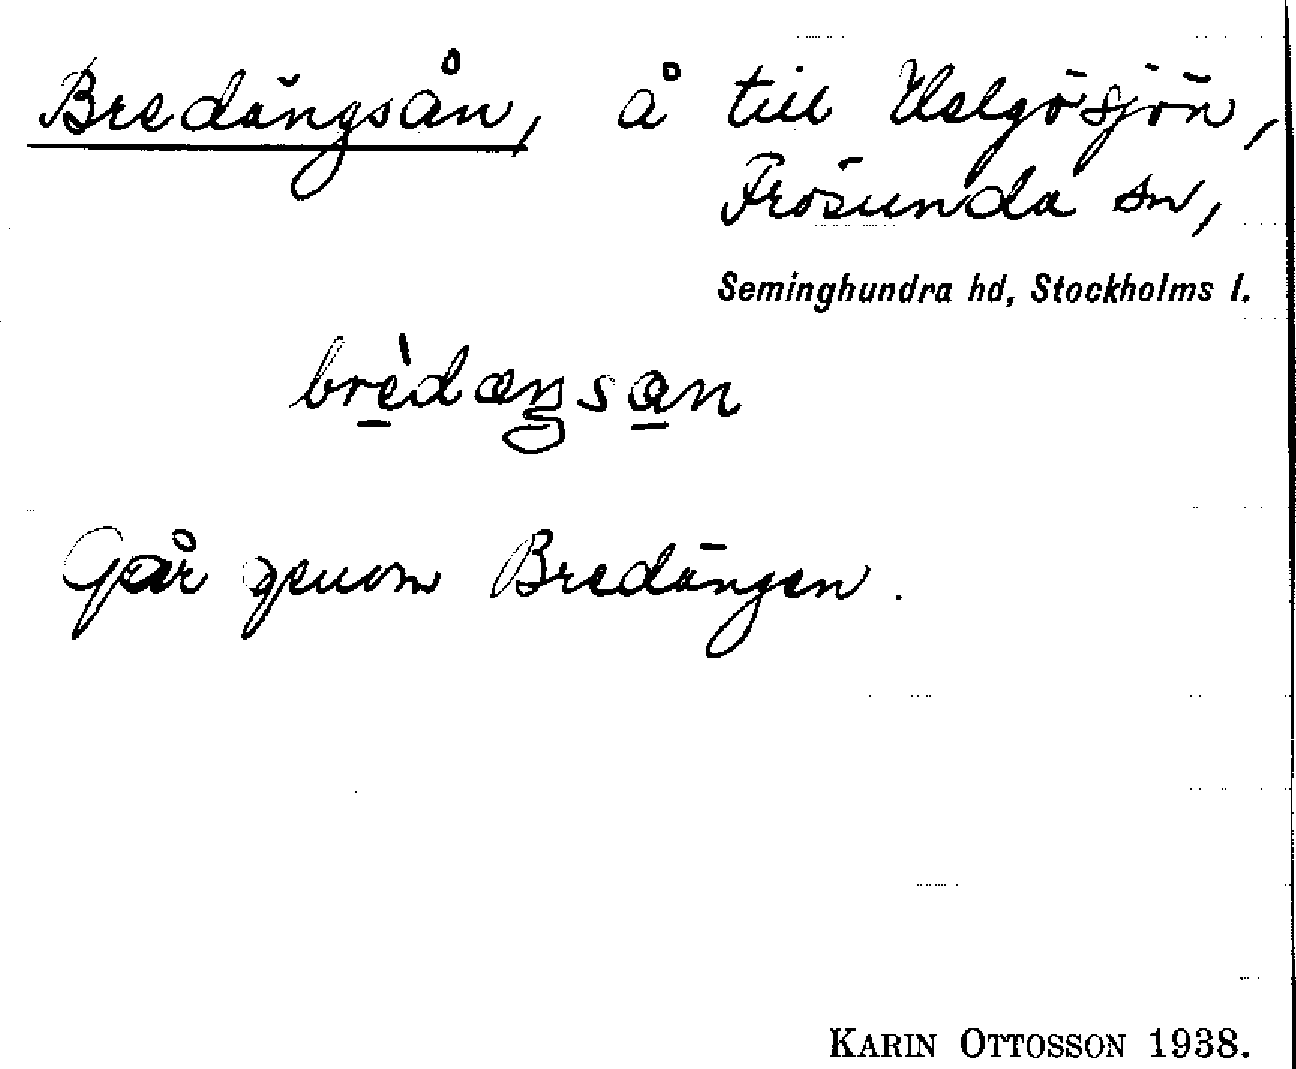 Bredängsån, å till Helgösjön,
Frösunda sn,
Seminghundra hd, Stockholms l.
brè̠dæŋsa̠n
Går genom Bredängen.
KARIN OTTOSSON 1938.